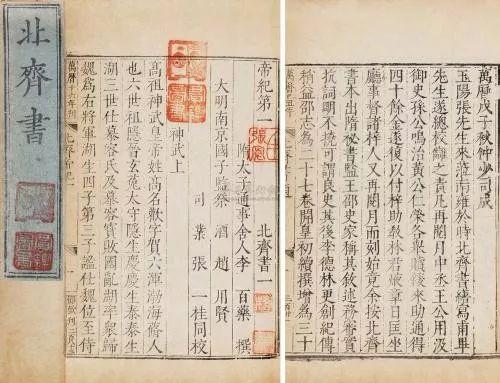 北齊書
帝紀第一 北齊書一
隋太子通事舍人李 百藥 撰
大明南京國子監祭 酒 趙 用賢
司 業 張 一桂同校
神武上
高祖神武皇帝姓高名歡字賀六渾渤海蓨人
也六世祖隱晉玄菟太守隱生慶慶生泰泰生
湖三世仕慕容氏及慕容寶敗國亂湖率衆歸
魏爲右將軍湖生四子第三子謐仕魏位至侍
萬曆十六年刊
萬曆戊子秋仲少司成
玉陽張先生來蒞南雍於時北齊書繕寫甫畢
先生遂總校讎之責凡再閱月中丞王公用汲
御史孫公鳴治黃公仁榮各衆贖後來助通得
四十餘金遠復以付梓助教林君烶章日匡坐
廳事督諸梓人又再閱月而刻始竟余按北齊
書本出隋秘書監王卲史家稱其敘述務審實
抗詞明不撓可謂良史其後李德林更創紀傳
稍益卲志爲二十七卷開皇初續撰增爲三十